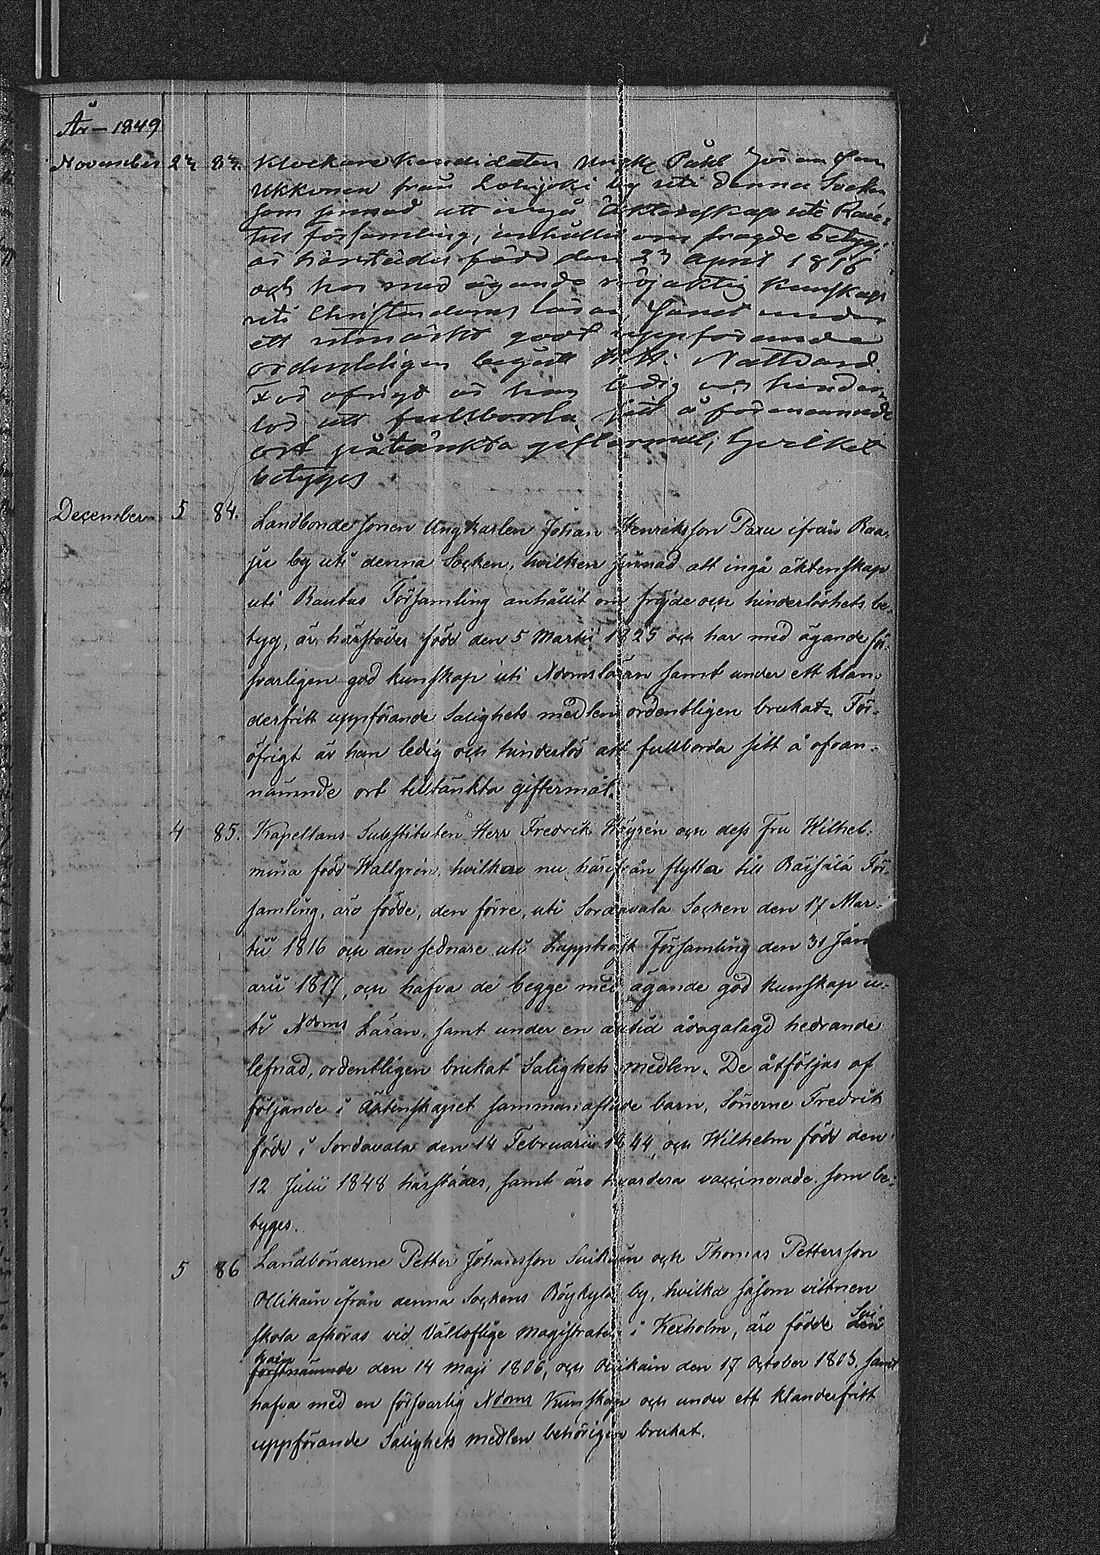 År 1849
November 27 83. Klockare Kandidaten Ungk. Påhl Johansson
Ukkonen från by uti denna Socken
som sinnad att ingå äktenskap uti Rau-
tus församling, anhållit om frägdebetyg,
är härstädes född den 23 April 1816
och har med ägande nöjaktig kunskap
uti Christendoms läran, samt under
ett utmärkt godt uppförande
ordentligen begått H. H. Nattvard.
För öfrigt är han ledig och hinder-
lös att fullborda sitt å förenämnde
ort påtänkta giftermål; hvilket
betyges
December 5 84. Landbondesonen Ungkarlen Johan Henriksson Paxu ifrån Raa-
ju by uti denna Socken, hvilken sinnad att ingå äktenskap
uti Rautus Församling anhållit om frejde och hinderlöshets be-
tyg, är härstädes född den 5 Martii 1825 och har med ägande för-
svarligen god kunskap uti Xdomsläran samt under ett klan-
derfritt uppförande Salighets medlen ordentligen brukat. För-
öfrigt är han ledig och hinderlös att fullborda sitt å ofvan-
nämnde ort tilltänkta giftermål.
4 85. Kapellans Substituten Herr Fredrik Högrén och dess Fru Wilhel-
mina född Wallgrén, hvilkere nu härifrån flyttar till Räisälä För-
samling, äro födde, den förre, uti Sordavala Socken den 17 Mar-
tii 1816 och den sednare uti Lappträsk Församling den 31 Janu-
arii 1817, och hafva de begge med ägande god kunskap u-
ti Xdoms Läran, samt under en altid ådagalagd hedrande
lefnad, ordentligen brukat Salighets medlen. De åtföljas af
följande i Äktenskapet sammanaflade barn, Sönerne Fredrik
född i Sordavala den 14 Februarii 1844, och Wilhelm född den
12 Julii 1848 härstädes, samt äro hvardera vaccinerade som be-
tyges.
5 86 Landbönderne Petter Johansson Suikain och Thomas Pettersson
Ollikain ifrån denna Sockens Röykylä by, hvilka såsom vittnen
skola afhöras vid Vällofliga Magistraten i Kexholm, äro födde Sui
kain den 14 Maji 1806, och Ollikain den 17 October 1803, samt
hafva med en försvarlig Xdoms Kunskap och under ett klanderfritt
uppförande Salighets medlen behörigen brukat.